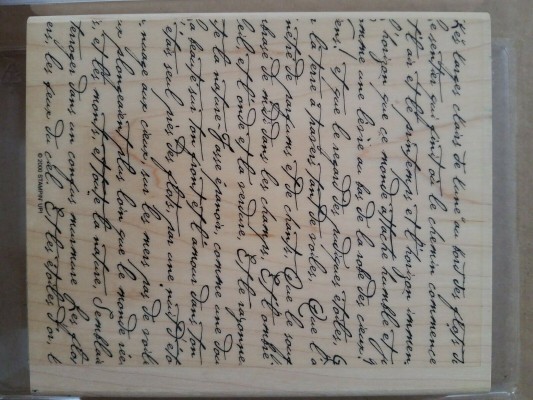 Les larges clairs de lune au bord des flots d
le sentier qui finit où le chemin commence
Et l'air et le printemps et l'horizon immen
L'horizon que ce monde attache humble et j
omme une lèvre au bas de la robe des cieux! Q
Et que le regard des pudiques étoiles Q
r la terre à travers tant de voiles, Que l'a
nétré de parfums et de chants, Que le souf
chose de midi dans les champs, Et l'ombre
leil et l'onde et la verdure, Et le rayonne
de la nature Fasse épanouir, comme une dou
La beauté sur ton front et l'amour dans ton
étais seul près des flots, par une nuit d'éto
n nuage aux cieux, sur les mers pas de voile
ux plongeaient plus loin que le monde rée
s, et les monts, et toute la nature, Semblai
terroger dans un confus murmure Les flo
ers, les feux du ciel. Et les étoiles d'or, l
© 2006 STAMPIN' UP!